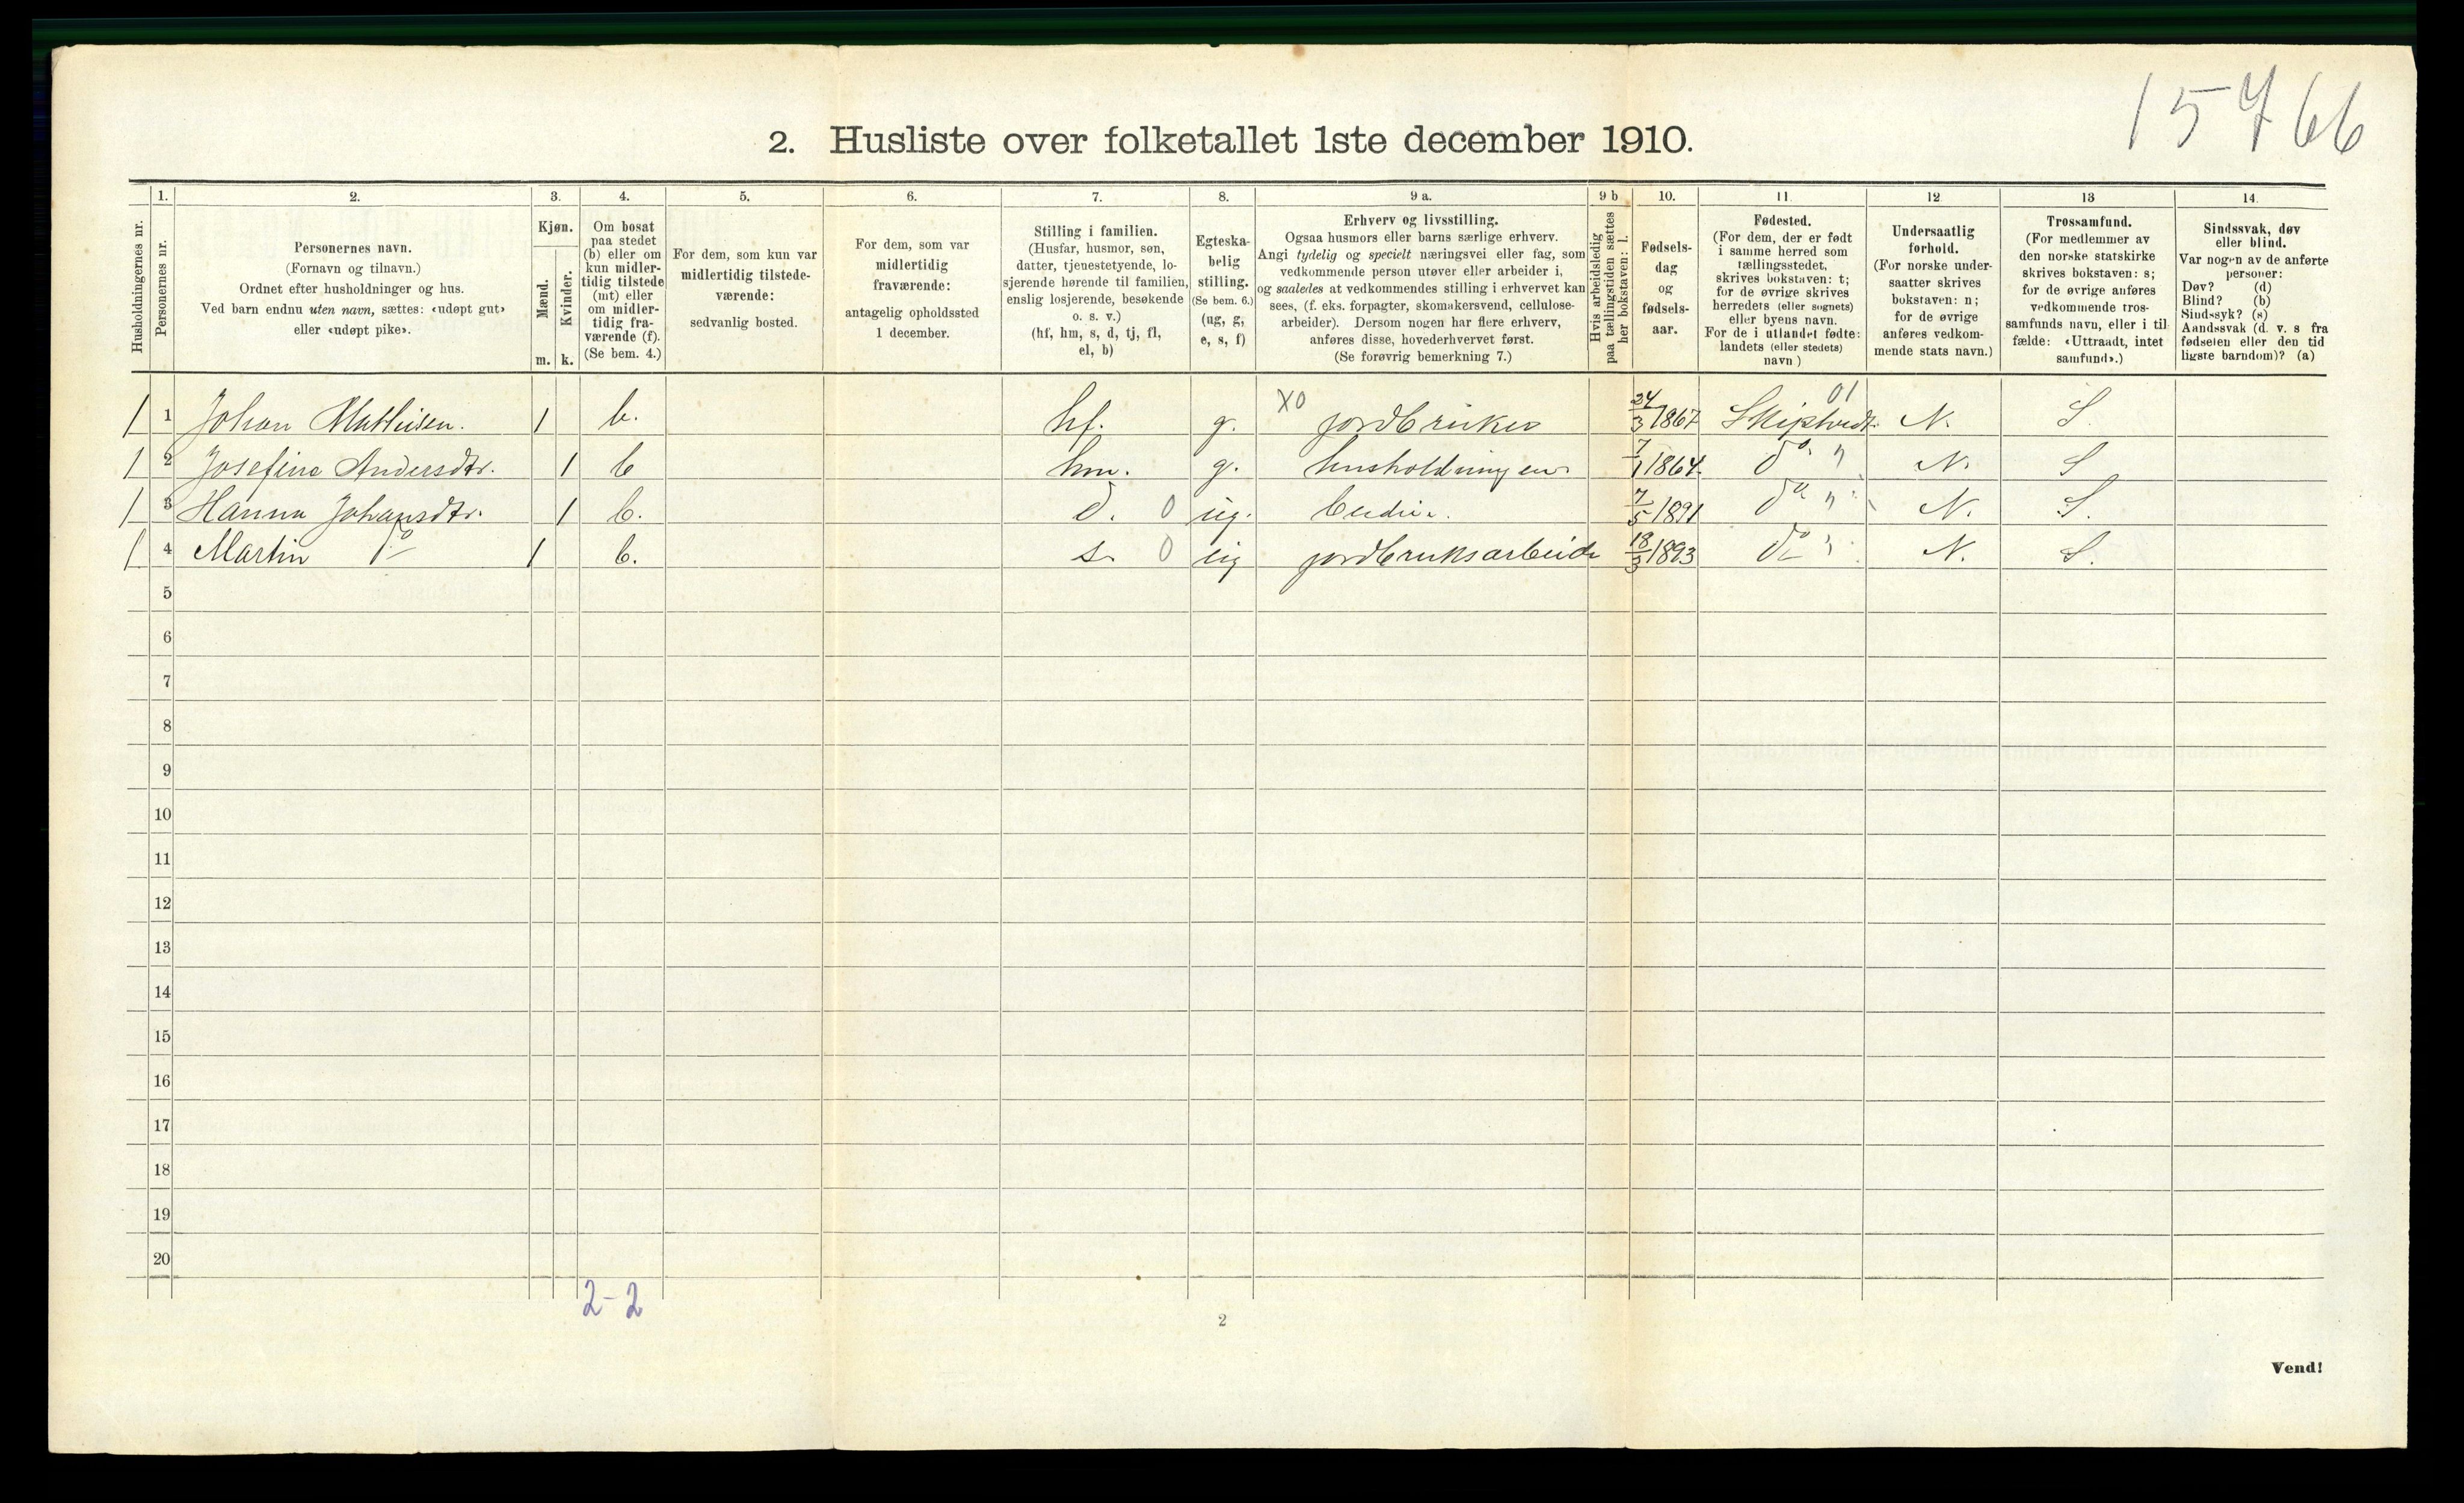 15766
2. Husliste over folketallet 1ste december 1910.
Husholdningernes nr.
1.
Personernes nr.
2.
Personernes navn.
(Fornavn og tilnavn.)
Ordnet efter husholdninger og hus.
Ved barn endnu uten navn, sættes: «udøpt gut»
eller «udøpt pike».
3.
Kjøn.
Mænd.
Kvinder.
m. k.
4.
Om bosat
paa stedet
(b) eller om
kun midler-
tidig tilstede
(mt) eller
om midler-
tidig fra-
værende (f).
(Se bem. 4.)
5.
For dem, som kun var
midlertidig tilstede-
værende:
sedvanlig bosted.
6.
For dem, som var
midlertidig
fraværende:
antagelig opholdssted
1 december.
7.
Stilling i familien.
(Husfar, husmor, søn,
datter, tjenestetyende, lo-
sjerende hørende til familien,
enslig losjerende, besøkende
o. s. v.)
(hf, hm, s, d, tj, fl,
el, b)
8.
Egteska-
belig
stilling.
(Se bem. 6.)
(ug, g,
e, s, f)
9 a.
Erhverv og livsstilling.
Ogsaa husmors eller barns særlige erhverv.
Angi tydelig og specielt næringsvei eller fag, som
vedkommende person utøver eller arbeider i,
og saaledes at vedkommendes stilling i erhvervet kan
sees, (f. eks. forpagter, skomakersvend, cellulose-
arbeider). Dersom nogen har flere erhverv,
anføres disse, hovederhvervet først.
(Se forøvrig bemerkning 7.)
9 b
Hvis arbeidsledig
paa tællingstiden sættes
her bokstaven: l.
10.
Fødsels-
dag
og
fødsels-
aar.
11.
Fødested.
(For dem, der er født
i samme herred som
tællingsstedet,
skrives bokstaven: t;
for de øvrige skrives
herredets (eller sognets)
eller byens navn.
For de i utlandet fødte:
landets (eller stedets)
navn.)
12.
Undersaatlig
forhold.
(For norske under-
saatter skrives
bokstaven: n;
for de øvrige
anføres vedkom-
mende stats navn.)
13
Trossamfund.
(For medlemmer av
den norske statskirke
skrives bokstaven: s;
for de øvrige anføres
vedkommende tros-
samfunds navn, eller i til-
fælde: «Uttraadt, intet
samfund».)
14.
Sindssvak, døv
eller blind.
Var nogen av de anførte
personer:
Døv? (d)
Blind? (b)
Sindssyk? (s)
Aandssvak (d. v. s. fra
fødselen eller den tid-
ligste barndom)? (a)
1 1 Johan Mathisen. 1 b. hf. g. X0 jordbruker 24/3 1867 Skiptvedt 01 N. S.
1 2 Josefine Andersdtr. 1 b hm. g. husholdningen 7/1 1864 do " N. S
1 3 Hanna Johansdtr. 1 b. d. 0 ug. budeie. 7/5 1891 do " N. S.
1 4 Martin do 1 b. s. 0 ug jordbruksarbeide 18/3 1893 do " N. S.
5
6
7
8
9
10
11
12
13
14
15
16
17
18
19
20
2-2
2
Vend!